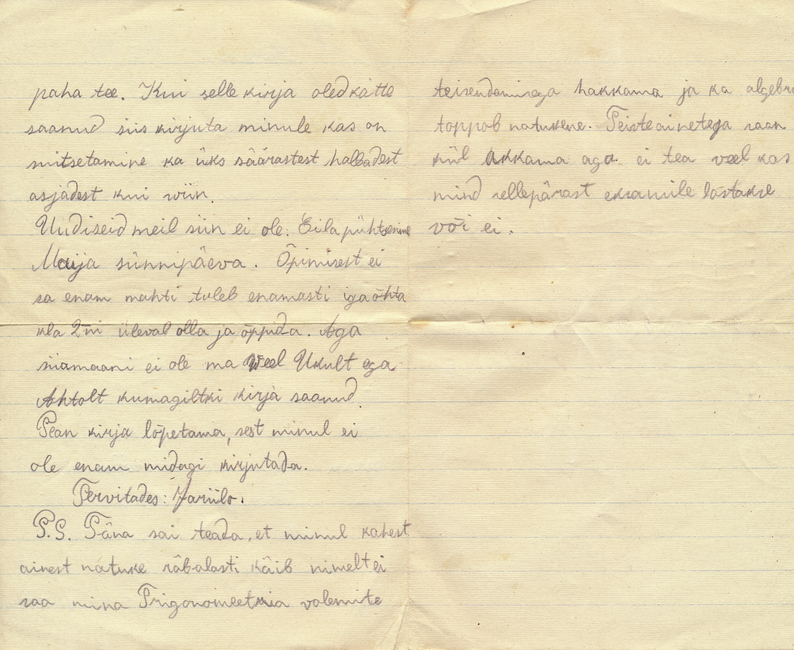 paha tee. Kui selle kirja oled kätte
saanud siis kirjuta minule kas on
suitsetamine ka üks säärastest halbadest
asjadest kui viin.
Uudiseid meil siin ei ole. Eila pühtsenime
Maija sünnipäeva. Õpimisest ei
sa enam mahti tuleb enamasti iga õhta
kla 2ni üleval olla ja õppida. Aga
siiamaani ei ole ma veel Ukult ega
Ahtolt kumagiltki kirja saanud.
Pean kirja lõpetama, sest minul ei
ole enam midagi kirjutada.
Tervitades: Jariilo.
P.S. Täna sai teada, et minul kahest
ainest natuke räbalasti käib nimelt ei
saa mina Trigonomeetria valemite
teisendamisega hakkama ja ka algebra
toppob natukene. Teiste ainetega saan
kül akkama aga ei tea veel kas
mind sellepärast eksamile lastakse
või ei.